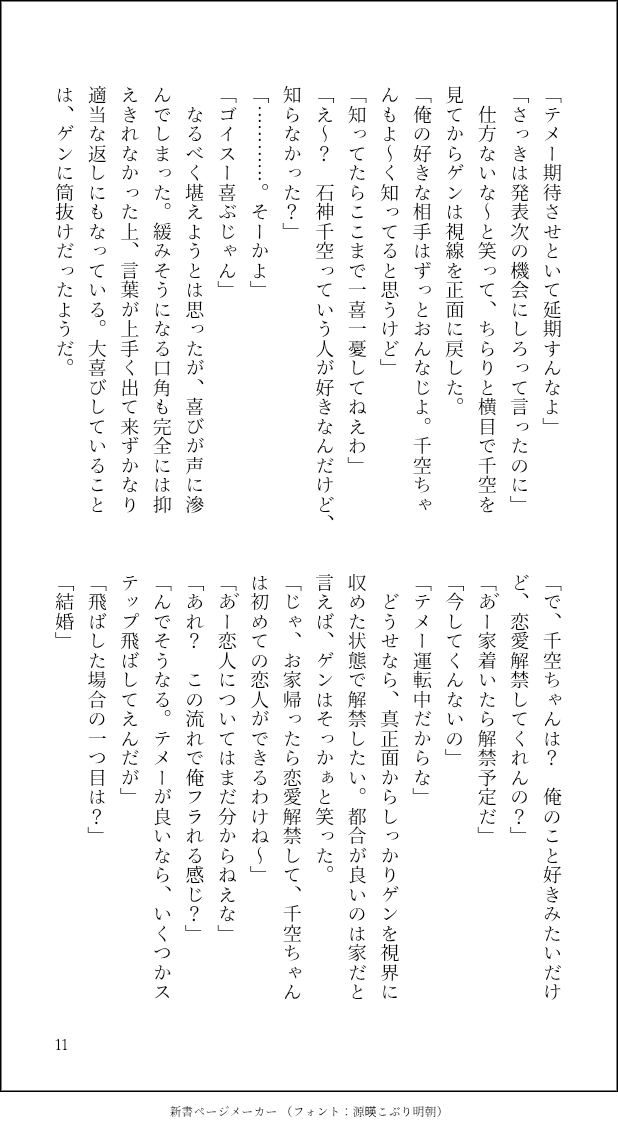 「テメー期待させといて延期すんなよ」
「さっきは発表次の機会にしろって言ったのに」
　仕方ないな～と笑って、ちらりと横目で千空を
見てからゲンは視線を正面に戻した。
「俺の好きな相手はずっとおんなじよ。千空ちゃ
んもよ～く知ってると思うけど」
「知ってたらここまで一喜一憂してねえわ」
「え～？　石神千空っていう人が好きなんだけど、
知らなかった？」
「…………。そーかよ」
「ゴイスー喜ぶじゃん」
　なるべく堪えようとは思ったが、喜びが声に滲
んでしまった。緩みそうになる口角も完全には抑
えきれなかった上、言葉が上手く出て来ずかなり
適当な返しにもなっている。大喜びしていること
は、ゲンに筒抜けだったようだ。
「で、千空ちゃんは？　俺のこと好きみたいだけ
ど、恋愛解禁してくれんの？」
「あ゙ー家着いたら解禁予定だ」
「今してくんないの」
「テメー運転中だからな」
　どうせなら、真正面からしっかりゲンを視界に
収めた状態で解禁したい。都合が良いのは家だと
言えば、ゲンはそっかぁと笑った。
「じゃ、お家帰ったら恋愛解禁して、千空ちゃん
は初めての恋人ができるわけね～」
「あ゙ー恋人についてはまだ分からねえな」
「あれ？　この流れで俺フラれる感じ？」
「んでそうなる。テメーが良いなら、いくつかス
テップ飛ばしてえんだが」
「飛ばした場合の一つ目は？」
「結婚」
11
新書ページメーカー（フォント：源暎こぶり明朝）